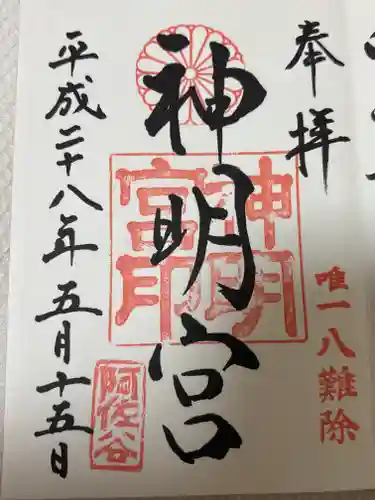 奉拝
唯一八難除
神明宮
神明
宮印
平成二十八年五月十五日
阿佐谷